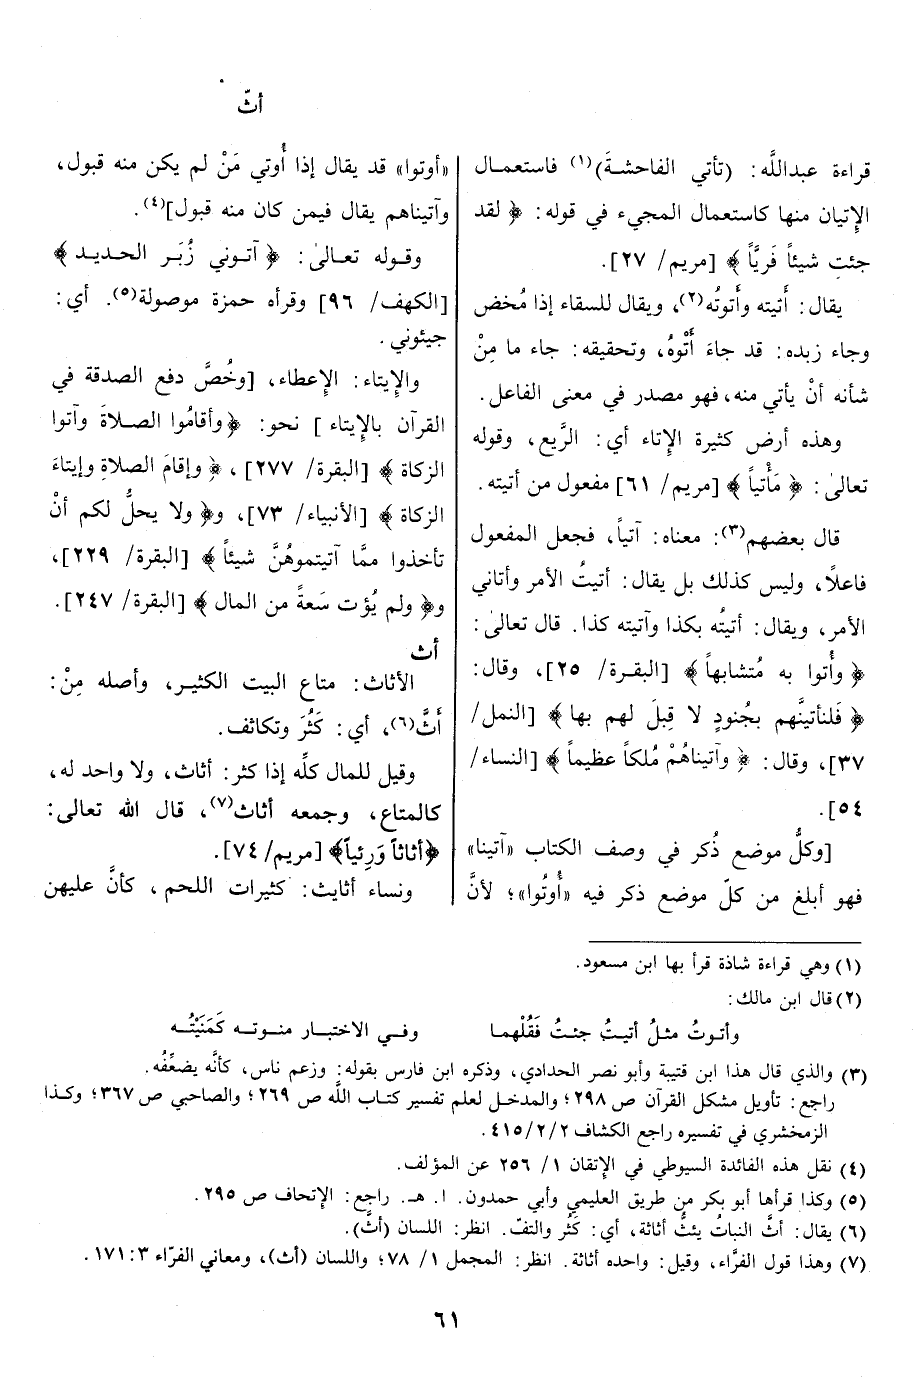 أثّ
قراءة عبداللَّه: (تأتي الفاحشةَ)(١) فاستعمال
الإتيان منها كاستعمال المجيء في قوله: ﴿ لقد
جئتِ شيئاً فَريَّاً ﴾ [مريم/ ٢٧].
يقال: أَتيته وأَتوتُه(٢)، ويقال للسقاء إذا مُخض
وجاء زبده: قد جاءَ أَتْوهُ، وتحقيقه: جاء ما مِنْ
شأنه أنْ يأتي منه، فهو مصدر في معنى الفاعل.
وهذه أرض كثيرة الإتاء أي: الرَّيع، وقوله
تعالىٰ: ﴿ مَأْتياً ﴾ [مريم/ ٦١] مفعول من أتيته.
قال بعضهم(٣): معناه: آتياً، فجعل المفعول
فاعلًا، وليس كذلك بل يقال: أتيتُ الأمر وأتاني
الأمر، ويقال: أتيتُه بكذا وآتيته كذا. قال تعالىٰ:
﴿ وأُتوا به مُتشابهاً ﴾ [البقرة/ ٢٥]، وقال:
﴿ فَلنأتينَّهم بجُنودٍ لا قِبلَ لهم بها ﴾ [النمل/
٣٧]، وقال: ﴿ وآتيناهُمْ مُلكاً عظيماً ﴾ [النساء/
٥٤].
[وكلُّ موضع ذُكر في وصف الكتاب «آتينا»
فهو أبلغ من كلّ موضع ذكر فيه «أُوتُوا»؛ لأنَّ
«أوتوا» قد يقال إذا أُوتي مَنْ لم يكن منه قبول،
وآتيناهم يقال فيمن كان منه قبول](٤).
وقوله تعالىٰ: ﴿ آتوني زُبَر الحديد ﴾
[الكهف/ ٩٦] وقرأه حمزة موصولة(٥). أي:
جيئوني.
والإِيتاء: الإِعطاء، [وخُصَّ دفع الصدقة في
القرآن بالإِيتاء ] نحو: ﴿وأقامُوا الصلاةَ وآتوا
الزكاة ﴾ [البقرة/ ٢٧٧]، ﴿ وإقامَ الصلاةِ وإيتاءَ
الزكاة ﴾ [الأنبياء/ ٧٣]، و﴿ ولا يحلُّ لكم أنْ
تأخذوا ممَّا آتيتموهُنَّ شيئاً ﴾ [البقرة/ ٢٢٩]،
و﴿ ولم يُؤت سَعةً من المال ﴾ [البقرة/ ٢٤٧].
أث
الأثاث: متاع البيت الكثير، وأصله مِنْ:
أَثَّ(٦)، أي: كَثُرَ وتكاثف.
وقيل للمال كلِّه إذا كثر: أثاث، ولا واحد له،
كالمتاع، وجمعه أثاث(٧)، قال اللّه تعالى:
﴿أثاثاً وَرِئياً﴾ [مريم/٧٤].
ونساء أثايث: كثيرات اللحم، كأنَّ عليهن
(١) وهي قراءة شاذة قرأ بها ابن مسعود.
(٢) قال ابن مالك:
وأتوتُ مثلُ أتيتُ جئتُ فَقُلْهما وفي الاختبار منوته كَمَنَيْتُه
(٣) والذي قال هذا ابن قتيبة وأبو نصر الحدادي، وذكره ابن فارس بقوله: وزعم ناس، كأنَّه يضعِّفُه.
راجع: تأويل مشكل القرآن ص ٢٩٨؛ والمدخل لعلم تفسير كتاب اللَّه ص ٢٦٩؛ والصاحبي ص ٣٦٧؛ وكذا
الزمخشري في تفسيره راجع الكشاف ٢/٢/ ٤١٥.
(٤) نقل هذه الفائدة السيوطي في الإتقان ١/ ٢٥٦ عن المؤلف.
(٥) وكذا قرأها أبو بكر من طريق العليمي وأبي حمدون. ا. هـ. راجع: الإتحاف ص ٢٩٥.
(٦) يقال: أثَّ النباتُ يئثُّ أثاثة، أي: كَثُر والتفّ. انظر: اللسان (أثَّ).
(٧) وهذا قول الفرَّاء، وقيل: واحده أثاثة. انظر: المجمل ١/ ٧٨؛ واللسان (أث)، ومعاني الفرّاء ٣: ١٧١.
٦١